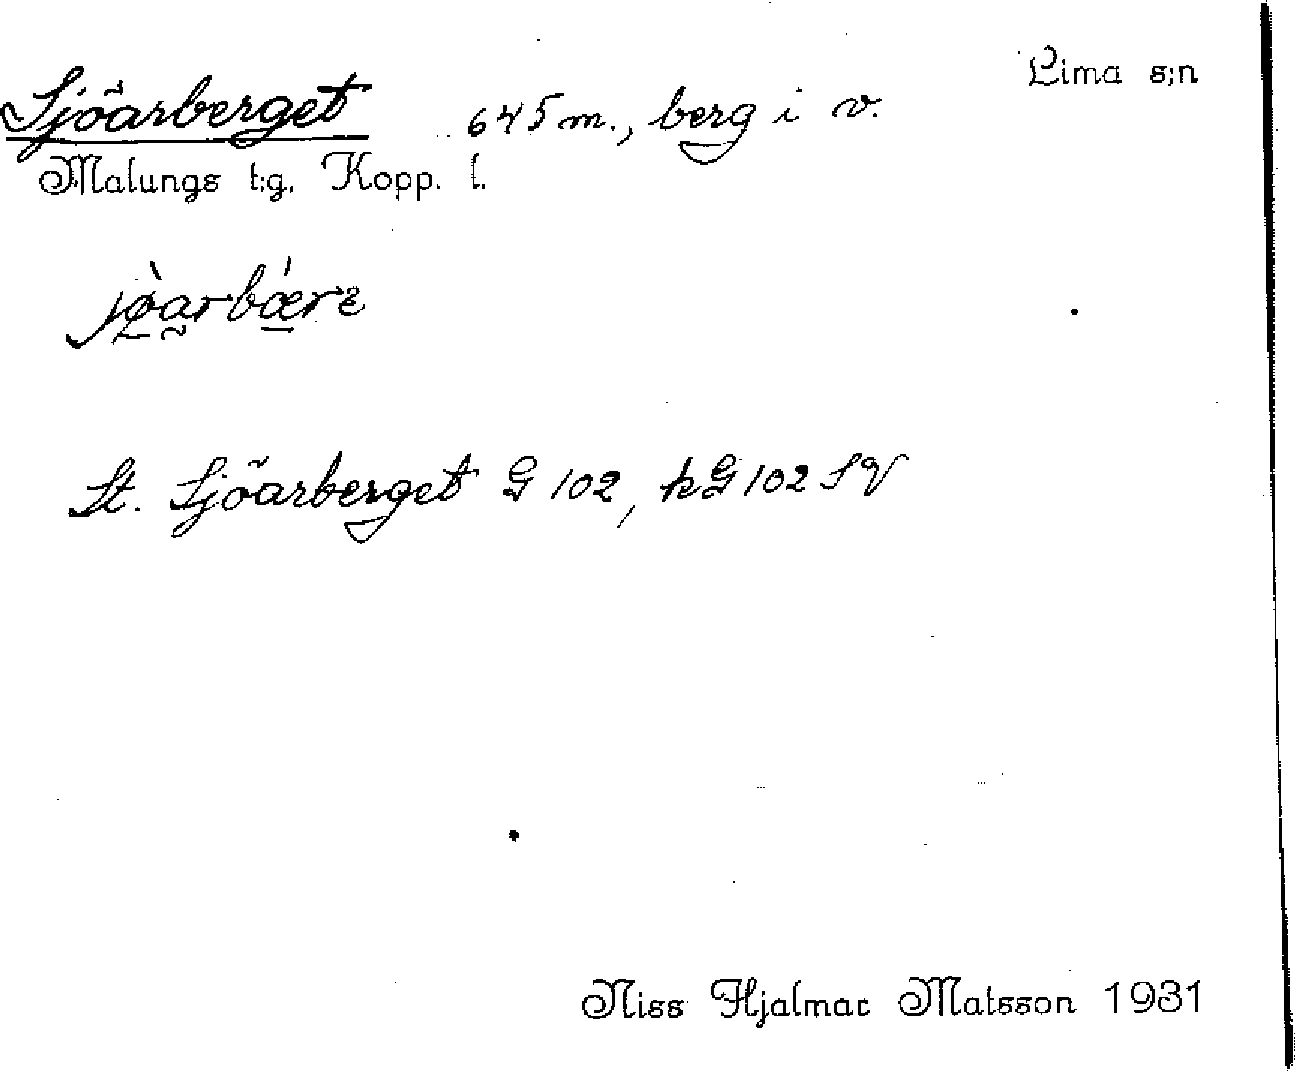 Lima s;n
Sjöarberget 645 m., berg i v.
Malungs t;g. Kopp. l.
jø̀arbǽre
St. Sjöarberget G 102, kG 102 SV
Niss Hjalmar Matsson 1931